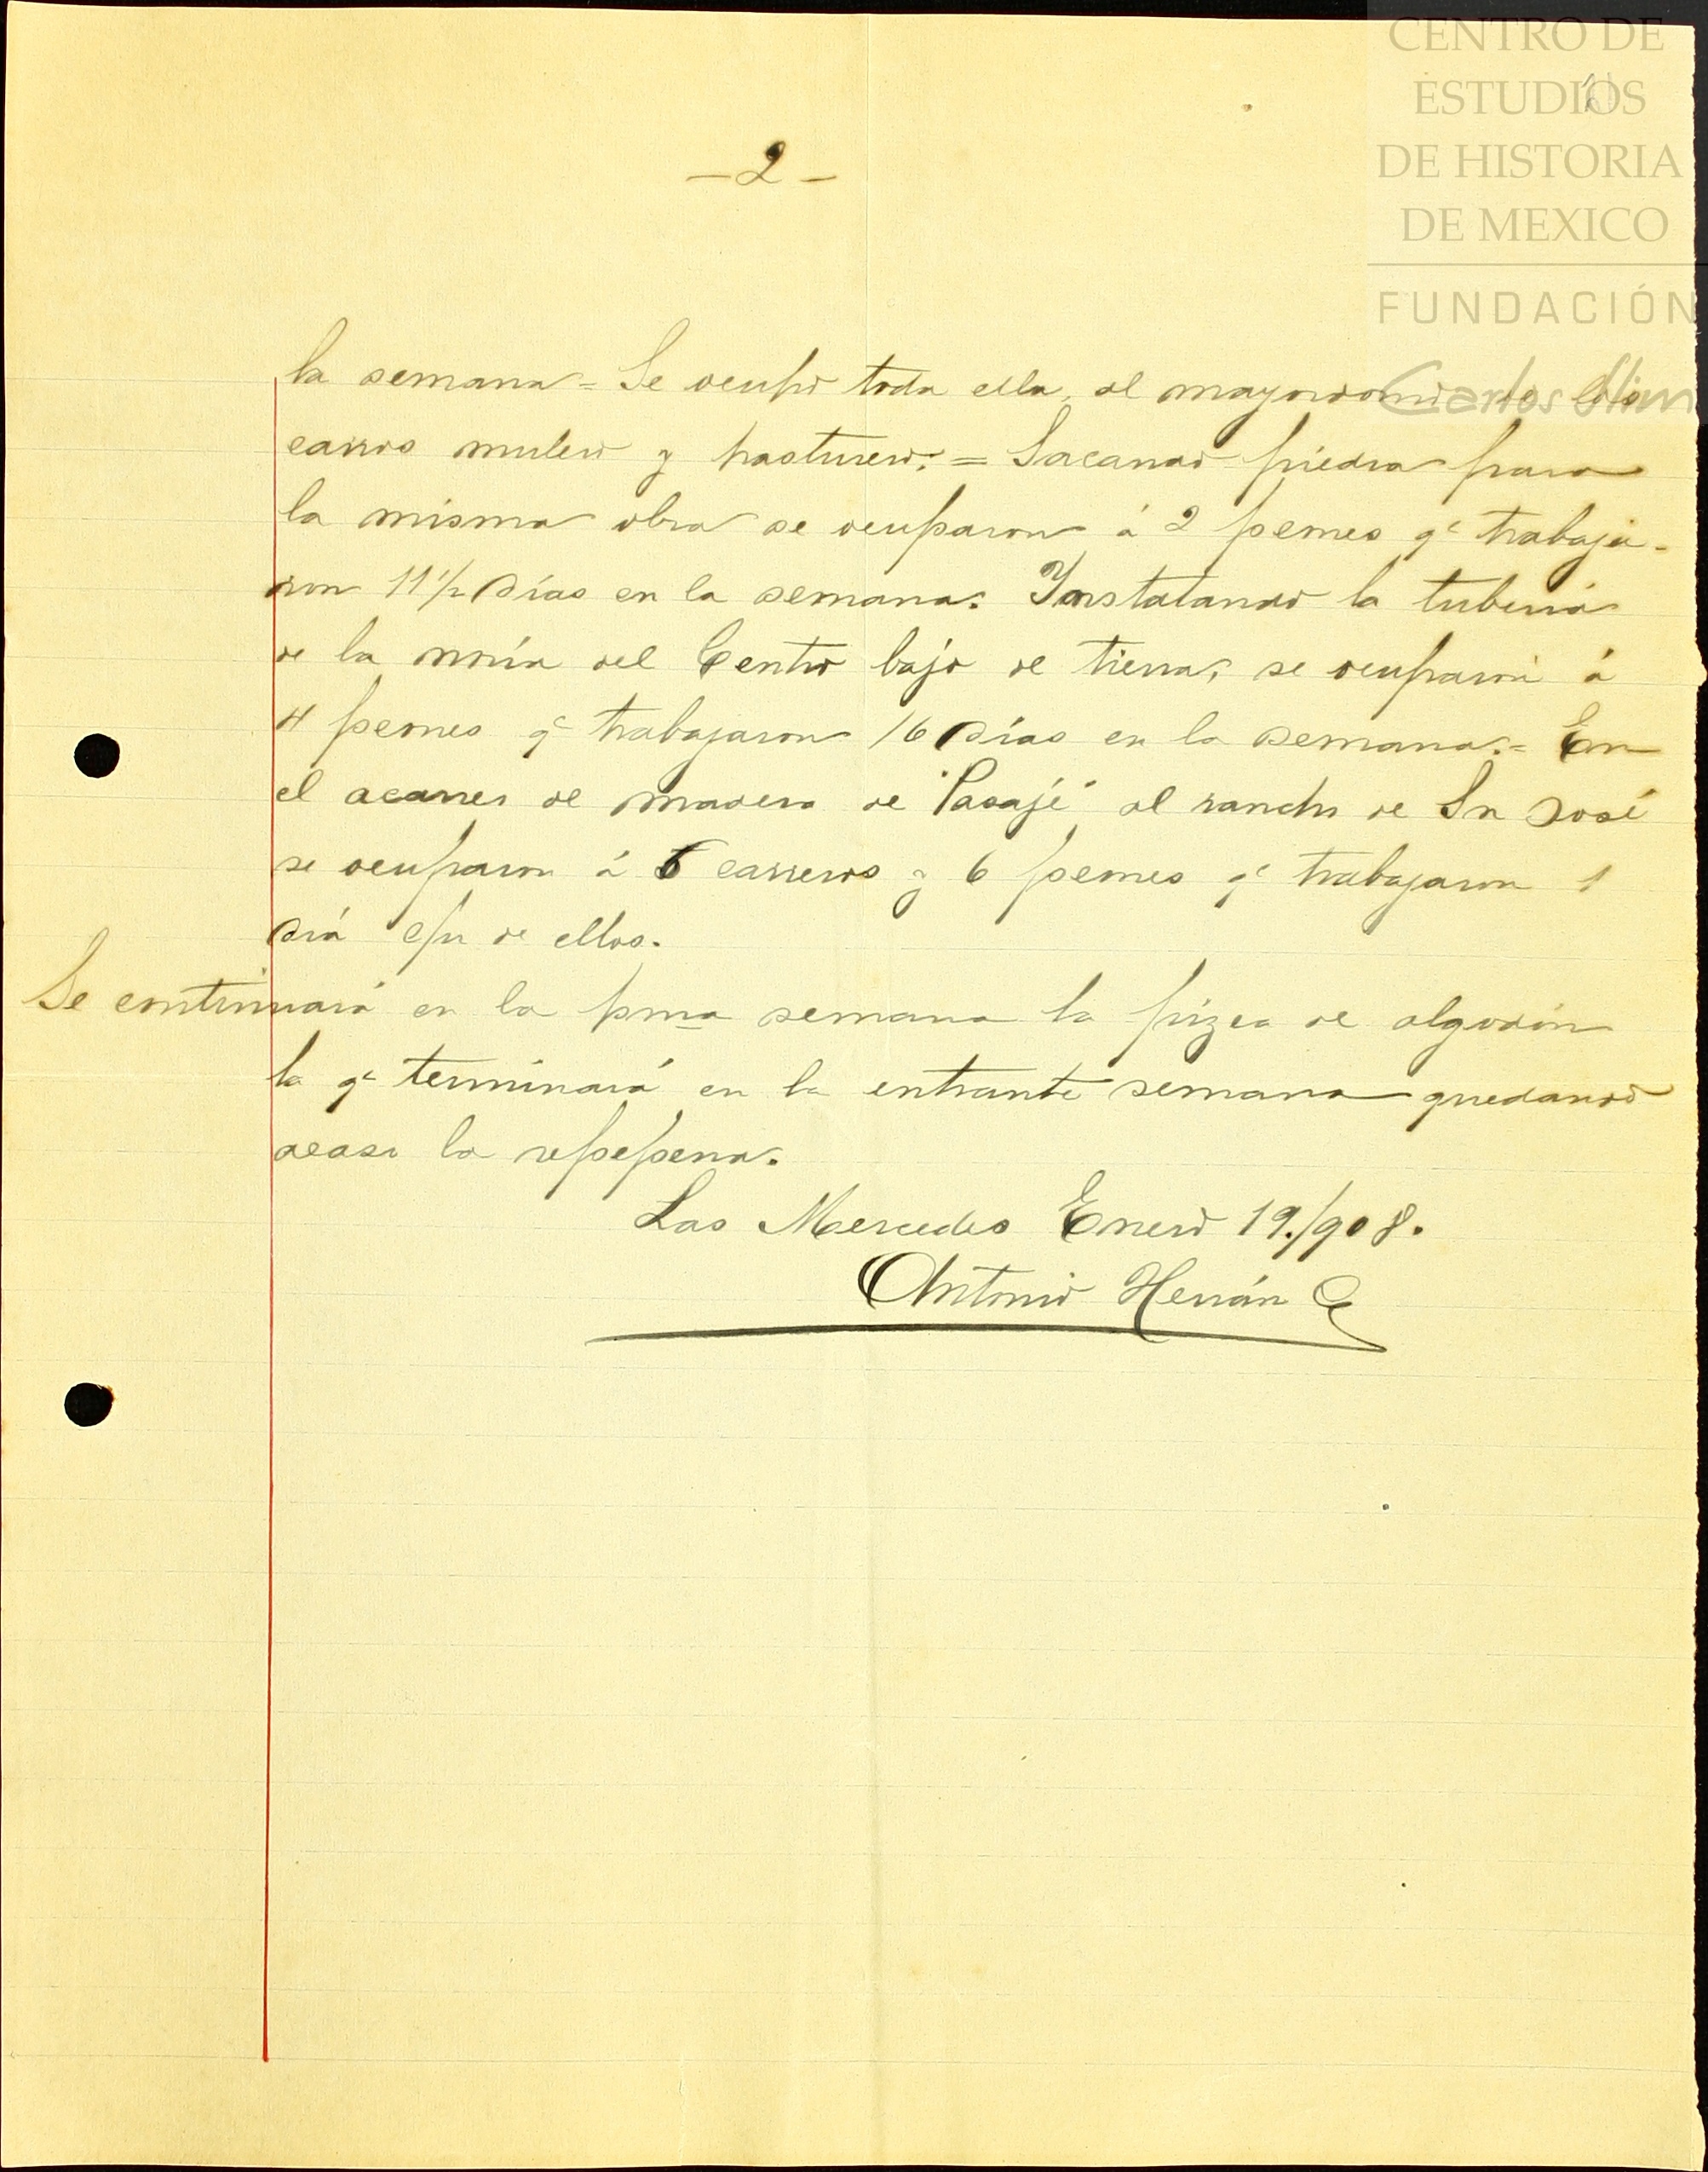 CENTRO DE
ESTUDIOS
DE HISTORIA
DE MEXICO
FUNDACIÓN
Carlos Slim
- 2 -
la semana = Se ocupó toda ella, al mayordomo de los
carros mulero y pasturero; = Sacando piedra para
la misma obra se ocuparon á 2 peones qe trabaja-
ron 11 1/2 días en la semana. Instalando la tubería
de la noria del Centro bajo de tierra, se ocuparon á
4 peones qe trabajaron 16 días en la semana.= En
el acarreo de madera de "Pasaje" al rancho de Sn José
se ocuparon á 6 carreros y 6 peones qe trabajaron 1
día c/u de ellos.
Se continuará en la pma semana la pizca de algodón
la qe terminará en la entrante semana quedando
acaso la repepena.
Las Mercedes Enero 19./908.
Antonio Herrán G